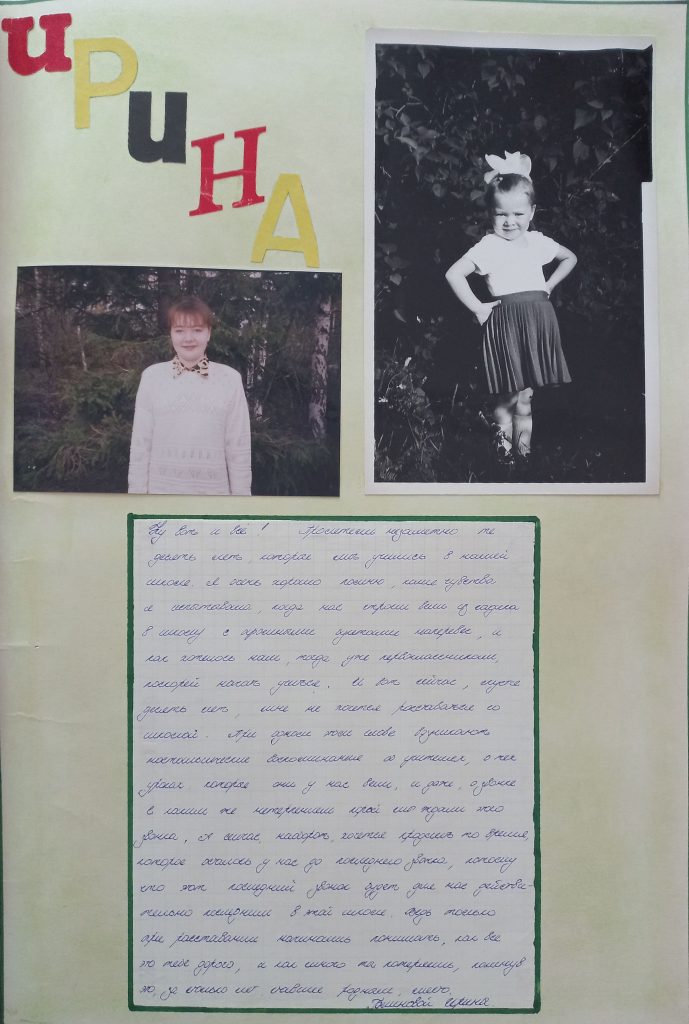 ИРИНА
Ну вот и всё! Пролетели незаметно те
десять лет, которые мы учились в нашей
школе. Я очень хорошо помню, какие чувства
я испытывала, когда нас строем вели из садика
в школу с огромными букетами наперевес, и
как хотелось нам, тогда уже первоклассникам,
поскорей начать учиться. И вот сейчас, спустя
десять лет, мне не хочется расставаться со
школой. При одном этом слове возникают
ностальгические воспоминания об учителях, о тех
уроках которые они у нас вели, и даже, о звонке
с каким же нетерпением порой мы ждали этого
звонка. А сейчас, наоборот, хочется продлить то время,
которое осталось у нас до последнего звонка, потому
что этот последний звонок будет для нас действи-
тельно последним в этой школе. Ведь только
при расставании начинаешь понимать, как все
это тебе дорого, и как много ты потеряешь, покинув
это, за столько лет ставшее родным, место.
Ирина.